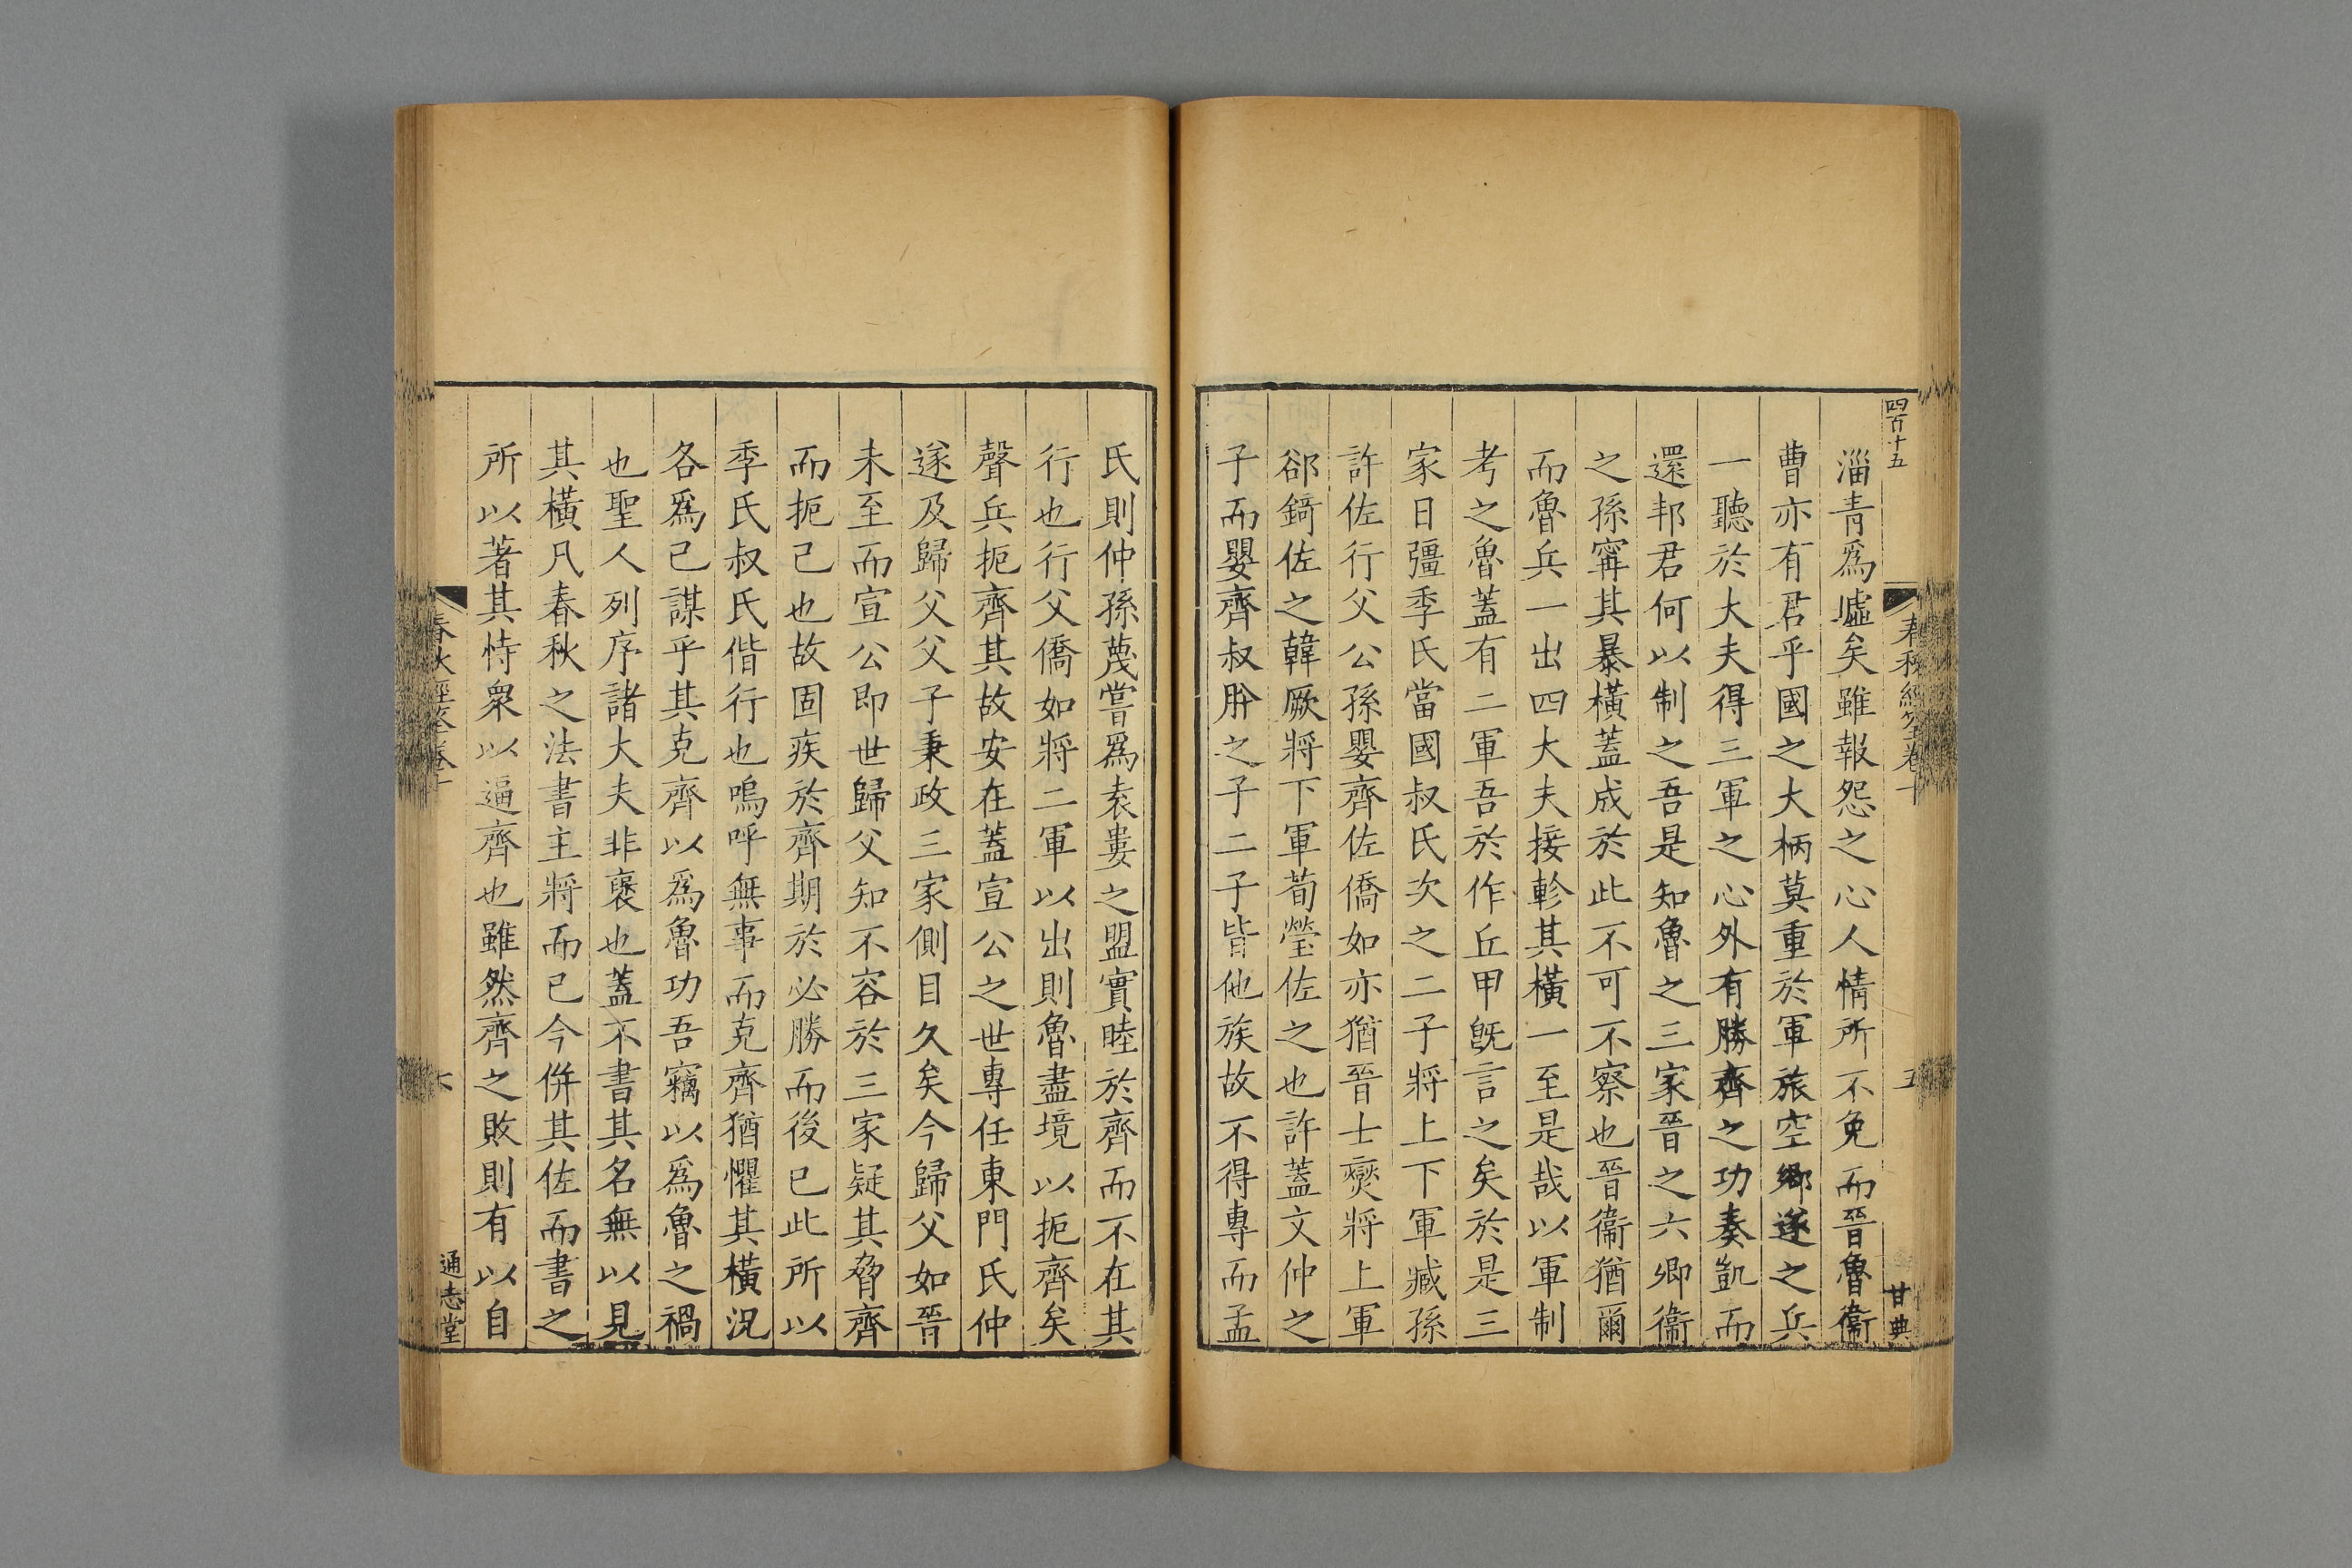 四百十五
春秋經筌卷十
五
甘典
淄青爲墟矣雖報怨之心人情所不免而晉魯衞
曹亦有君乎國之大柄莫重於軍旅空鄉遂之兵
一聽於大夫得三軍之心外有勝齊之功奏凱而
還邦君何以制之吾是知魯之三家晉之六卿衞
之孫寗其暴橫蓋成於此不可不察也晉衞猶爾
而魯兵一出四大夫接軫其橫一至是哉以軍制
考之魯蓋有二軍吾於作丘甲旣言之矣於是三
家日彊季氏當國叔氏次之二子將上下軍臧孫
許佐行父公孫嬰齊佐僑如亦猶晉士爕將上軍
郤錡佐之韓厥將下軍荀瑩佐之也許蓋文仲之
子而嬰齊叔肸之子二子皆他族故不得專而孟
氏則仲孫蔑嘗爲袁婁之盟實睦於齊而不在其
行也行父僑如將二軍以出則魯盡境以扼齊矣
聲兵扼齊其故安在蓋宣公之世專任東門氏仲
遂及歸父父子秉政三家側目久矣今歸父如晉
未至而宣公即世歸父知不容於三家疑其脅齊
而扼己也故固疾於齊期於必勝而後已此所以
季氏叔氏偕行也嗚呼無事而克齊猶懼其橫況
各爲已謀乎其克齊以爲魯功吾竊以爲魯之禍
也聖人列序諸大夫非褒也蓋不書其名無以見
其橫凡春秋之法書主將而已今併其佐而書之
所以著其恃衆以逼齊也雖然齊之敗則有以自
春秋經筌卷十
六
通志堂